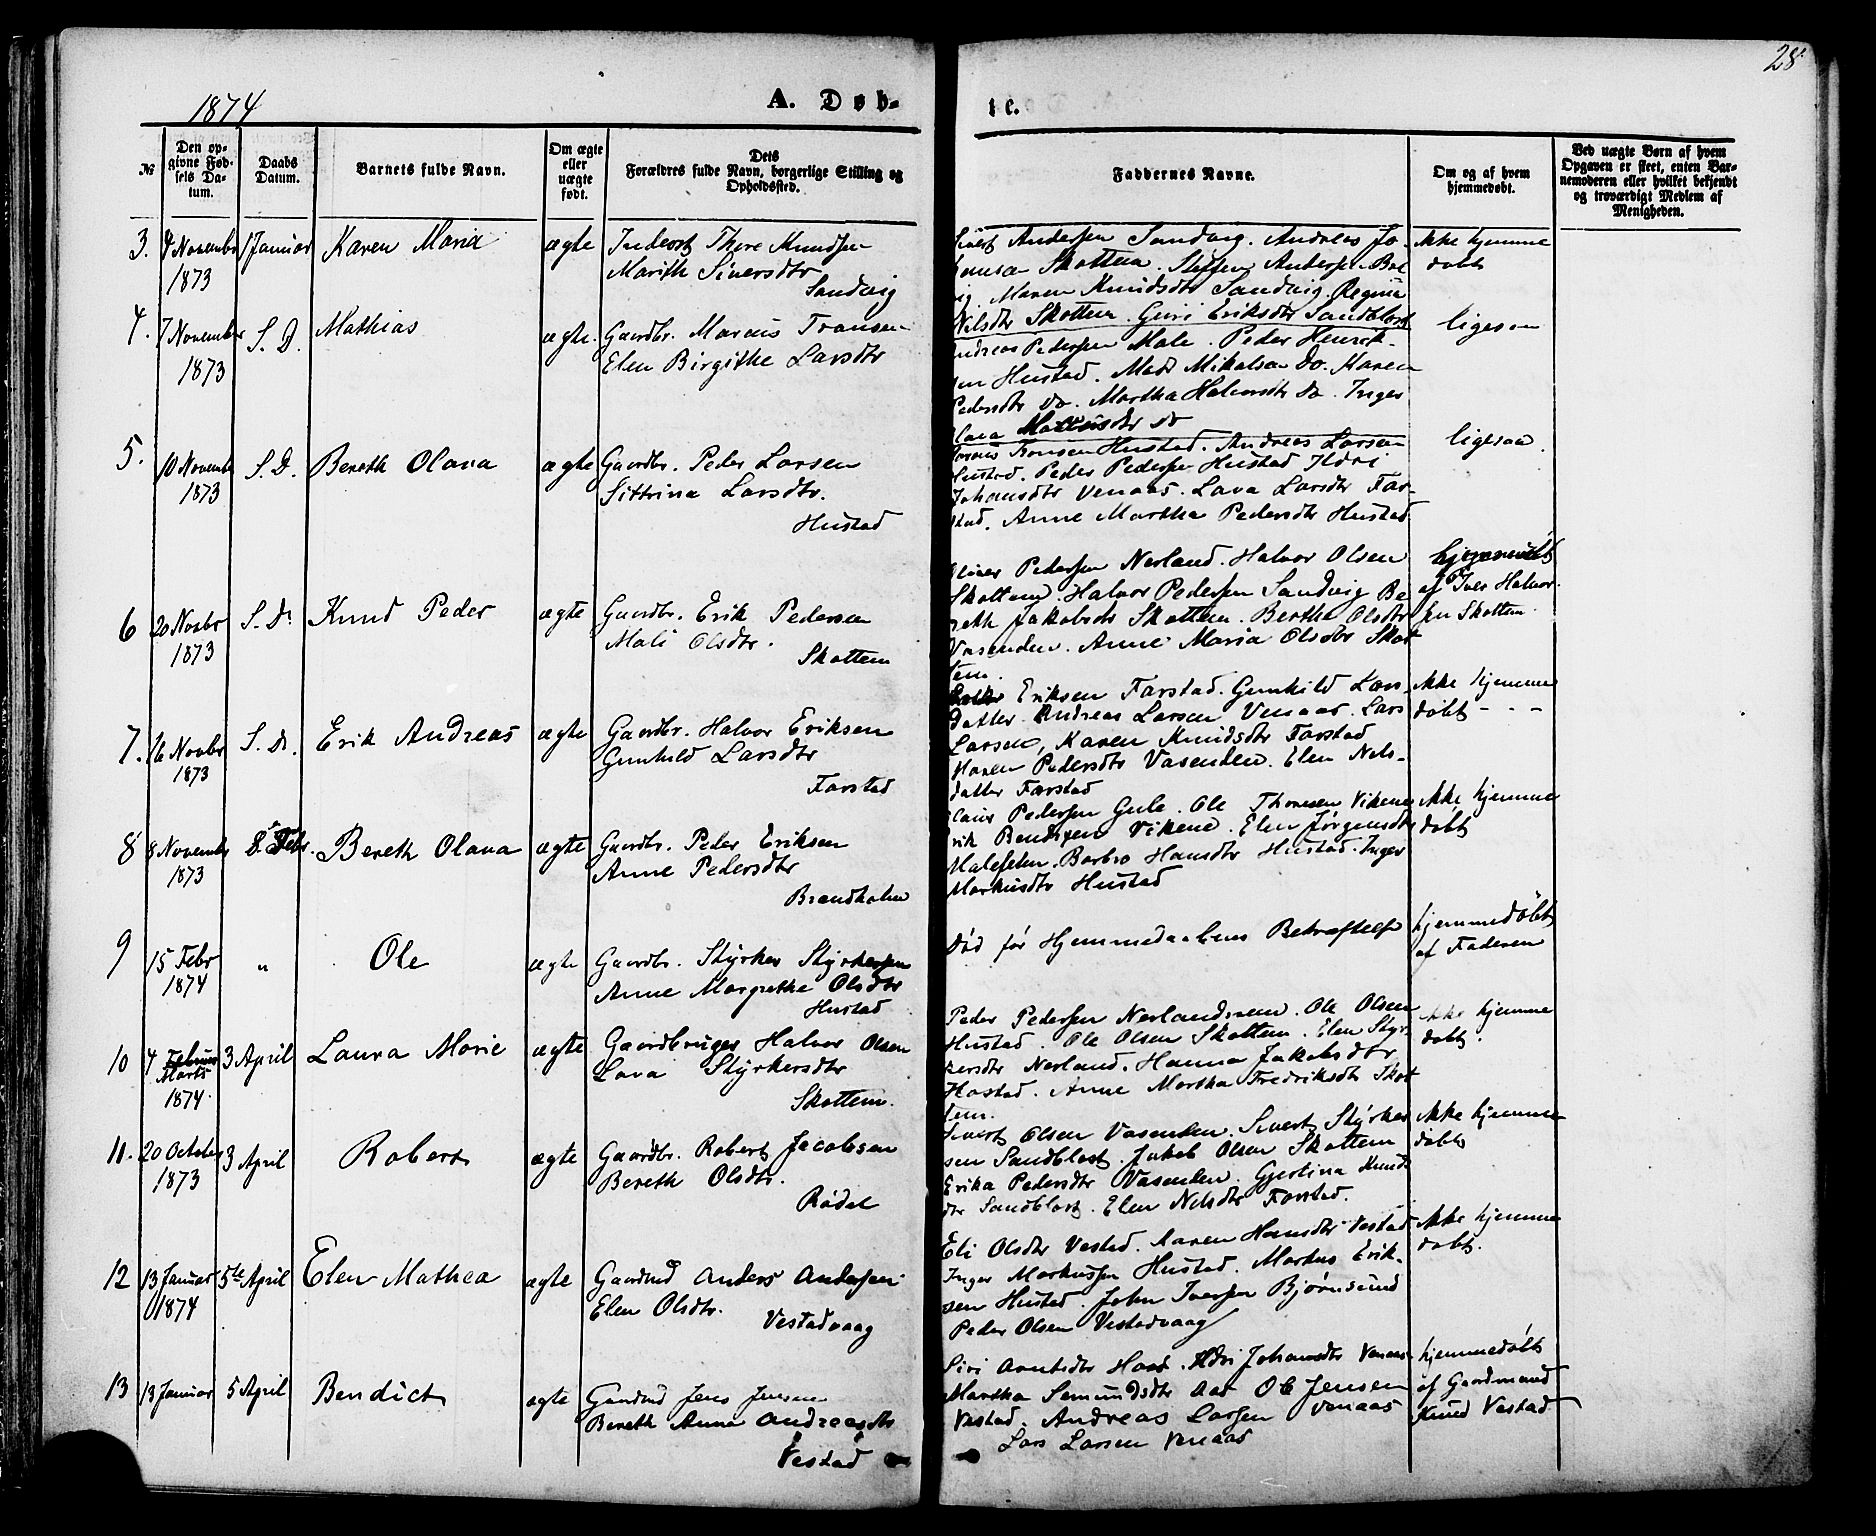 28
1874
A. Døb-
te.
№
Den op-
givne Fød-
sels Da-
tum.
Daabs
Datum.
Barnets fulde Navn.
Om ægte
eller
uægte
født.
Dets
Forældres fulde Navn, borgerlige Stilling og
Opholdssted.
Faddernes Navne.
Om og af hvem
hjemmedøbt.
Ved uægte Børn af hvem
Opgaven er skeet, enten Bar-
nemoderen eller hvilket bekjendt
og troværdigt Medlem af
Menigheden.
3. 4 Novembr 1 Januar Karen Maria ægte Inderst Thore Knudsen
1873 Marith Siversdtr
Sandvig
Andersen Sandvig. Andreas Jo-
Skottem. Steffen Andersen
Maren Knudsdtr Sandvig. Regine
Nilsdtr Skottem. Guri Eriksdtr Sandblost
Ikke hjemme
døbt
4. 7 November S. D. Mathias ægte. Gaardbr. Marcus Fransen
1873 Elen Birgithe Larsdtr
Andreas Pedersen Male. Peder Henrik-
sen Hustad. Mads Mikalsen Do. Karen
Pedersdtr Do. Martha Halvorsdtr Do. Inger
do
ligesaa
5. 10 Novembr S. D. Bereth Olava ægte Gaardbr. Peder Larsen
1873 Sittrina Larsdtr.
Hustad
Fransen Hustad. Andreas Larsen
Hustad. Peder Pedersen Hustad Ildri
Johansdtr Venaas. Lava Larsdtr Far-
stad. Anne Martha Pedersdtr Hustad
ligesaa.
6 20 Novbr S. D. Knud Peder ægte Gaardbr. Erik Pedersen
1873 Mali Olsdtr.
Skottem
Pedersen Nerland. Halvor Olsen
Skottem. Halvor Pedersen Sandvig Be-
reth Jakobsdtr Skottem. Berthe Olsdtr
Vasenden. Anne Maria Olsdtr Skot
tem.
hjemmedøbt
af Iver Halvor
sen Skottem.
7. 16 Novbr S. D. Erik Andreas ægte Gaardbr. Halvor Eriksen
1873 Gunhild Larsdtr
Farstad
Eriksen Farstad. Gunhild Lars-
datter. Andreas Larsen Venaas. Lars
Larsen, Karen Knudsdtr Farstad
Maren Pedersdtr Vasenden. Elen Nils-
datter Farstad
Ikke hjemme
døbt - - -
8 8 Novembr 8 Febr. Bereth Olava ægte Gaardbr. Peder Eriksen
1873 Anne Pedersdtr
Brandholm
Claus Pedersen Gule. Ole Thoresen Vikene
Erik Bendixen Vikene. Elen Jørgensdtr
Malefeten. Barbro Hansdtr Hustad. Inger
Markusdtr Hustad
Ikke hjemme
døbt
9 15 Febr „ Ole ægte Gaardbr. Styrker Styrkersen
1874 Anne Margrethe Olsdtr
Hustad
Død før Hjemmedaabens Bekræftelse
hjemmedøbt
af Faderen
10 4 Februar 3 April Laura Marie ægte Gaardbruger Halvor Olsen
Marts Lava Styrkersdtr
1874. Skottem.
Peder Pedersen Nerlandsrem. Ole Olsen
Hustad. Ole Olsen Skottem. Elen Styr-
kersdtr Nerland. Hanna Jakobsdtr
Hostad. Anne Martha Fredriksdtr Skot
tem.
Ikke hjemme
døbt.
11. 20 October 3 April Robert ægte Gaardbr. Robert Jacobsen
1873 Bereth Olsdtr.
Rødal
Sivert Olsen Vasenden. Sivert Styrker
sen Sandblost. Jakob Olsen Skottem
Erika Pedersdtr Vasenden. Gjertina Knuds
dtr Sandblost. Elen Nilsdtr Farstad.
Ikke hjemme
døbt
12 13 Januar 5te April Elen Mathea ægte Gaardmd Anders Andersen
1874 Elen Olsdtr.
Vestadvaag
Eli Olsdtr Vestad. Karen Hansdtr Vestad
Inger Markussen Hustad. Markus Erik-
sen Hustad. John Iversen Bjørnsund
Peder Olsen Vestadvaag
Ikke hjemme
døbt.
13 13 Januar 5 April Bendict ægte Gaardmd Jens Jensen
Bereth Anna Andreasdtr
Vestad
Siri Arntsdtr Ildri Johansdtr Venaas
Martha Semundsdtr Aas Ole Jensen
Vestad. Andreas Larsen Venaas
Lars Larsen Venaas
hjemmedøbt
af Gaardmand
Knud Vestad